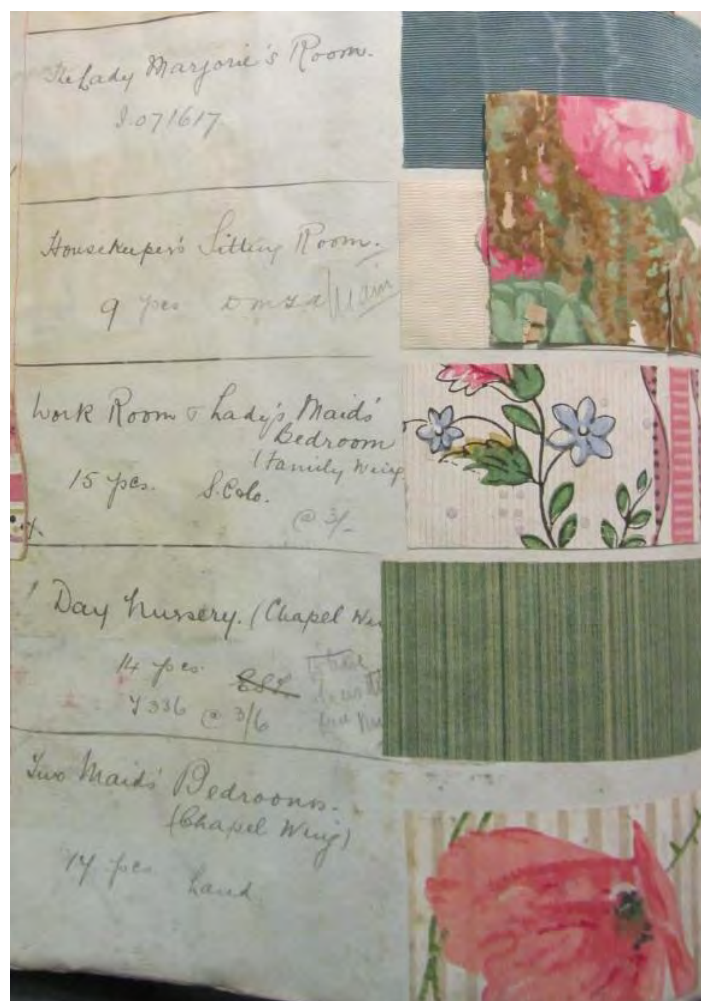 The Lady Marjorie's Room.
J.071617
Housekeeper's Sitting Room.
9 pcs
Work Room & Lady's Maids'
Bedroom
(Family Wing
15 pcs. S. Colo.
@ 3/-
Day Nursery. (Chapel
14 pcs.
@ 3/6
Two Maids' Bedrooms.
(Chapel Wing)
14 pcs